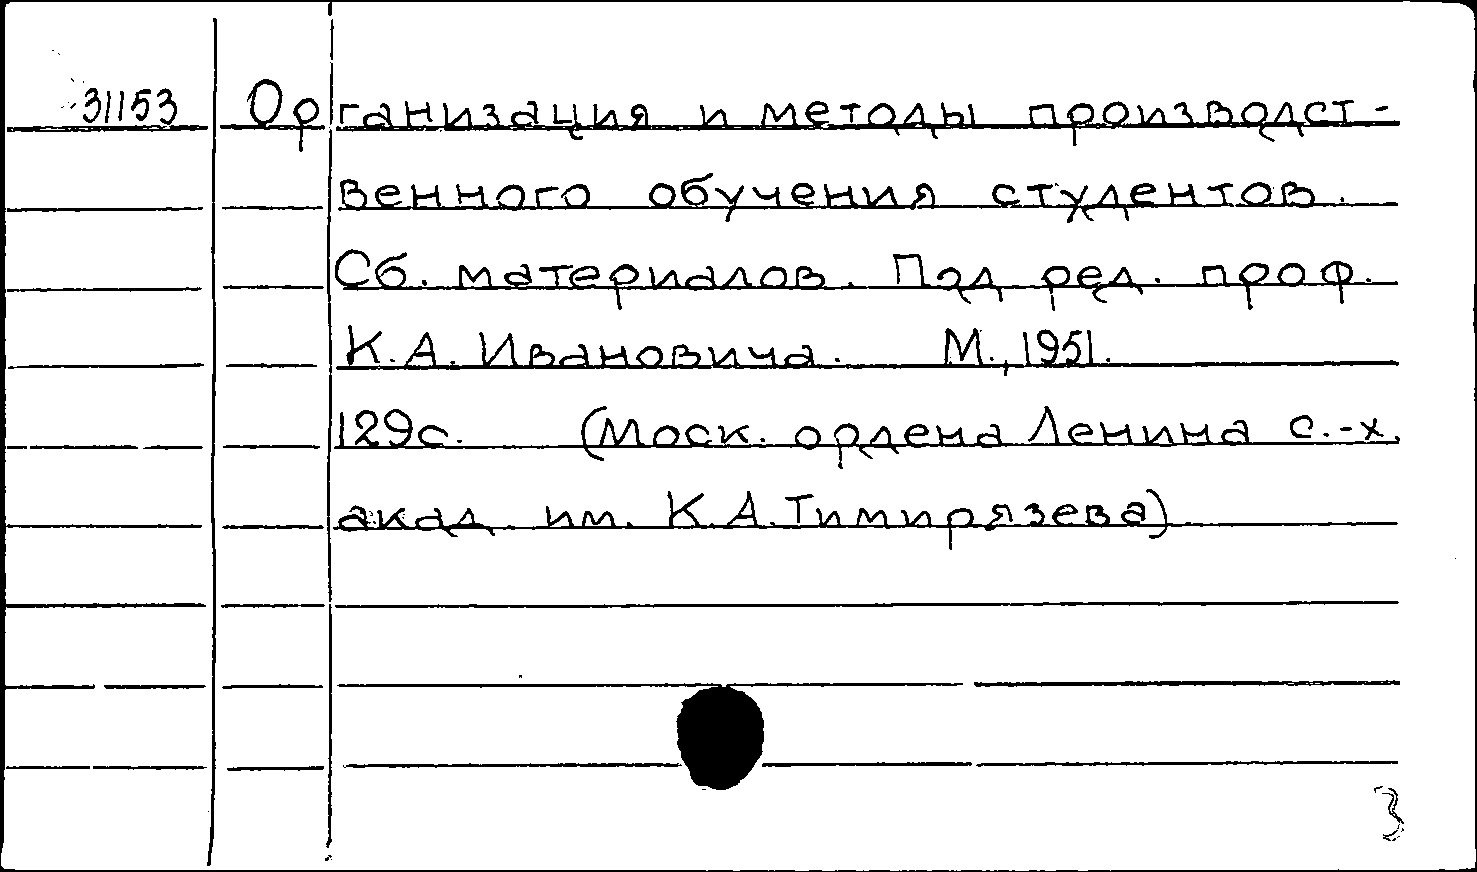 31153 Организация и методы производст-
венного обучения студентов.
Сб. материалов. Под ред. проф.
К.А. Ивановича. М., 1951.
129с. (Моск. ордена Ленина с.-х.
акад. им. К.А. Тимирязева)
3